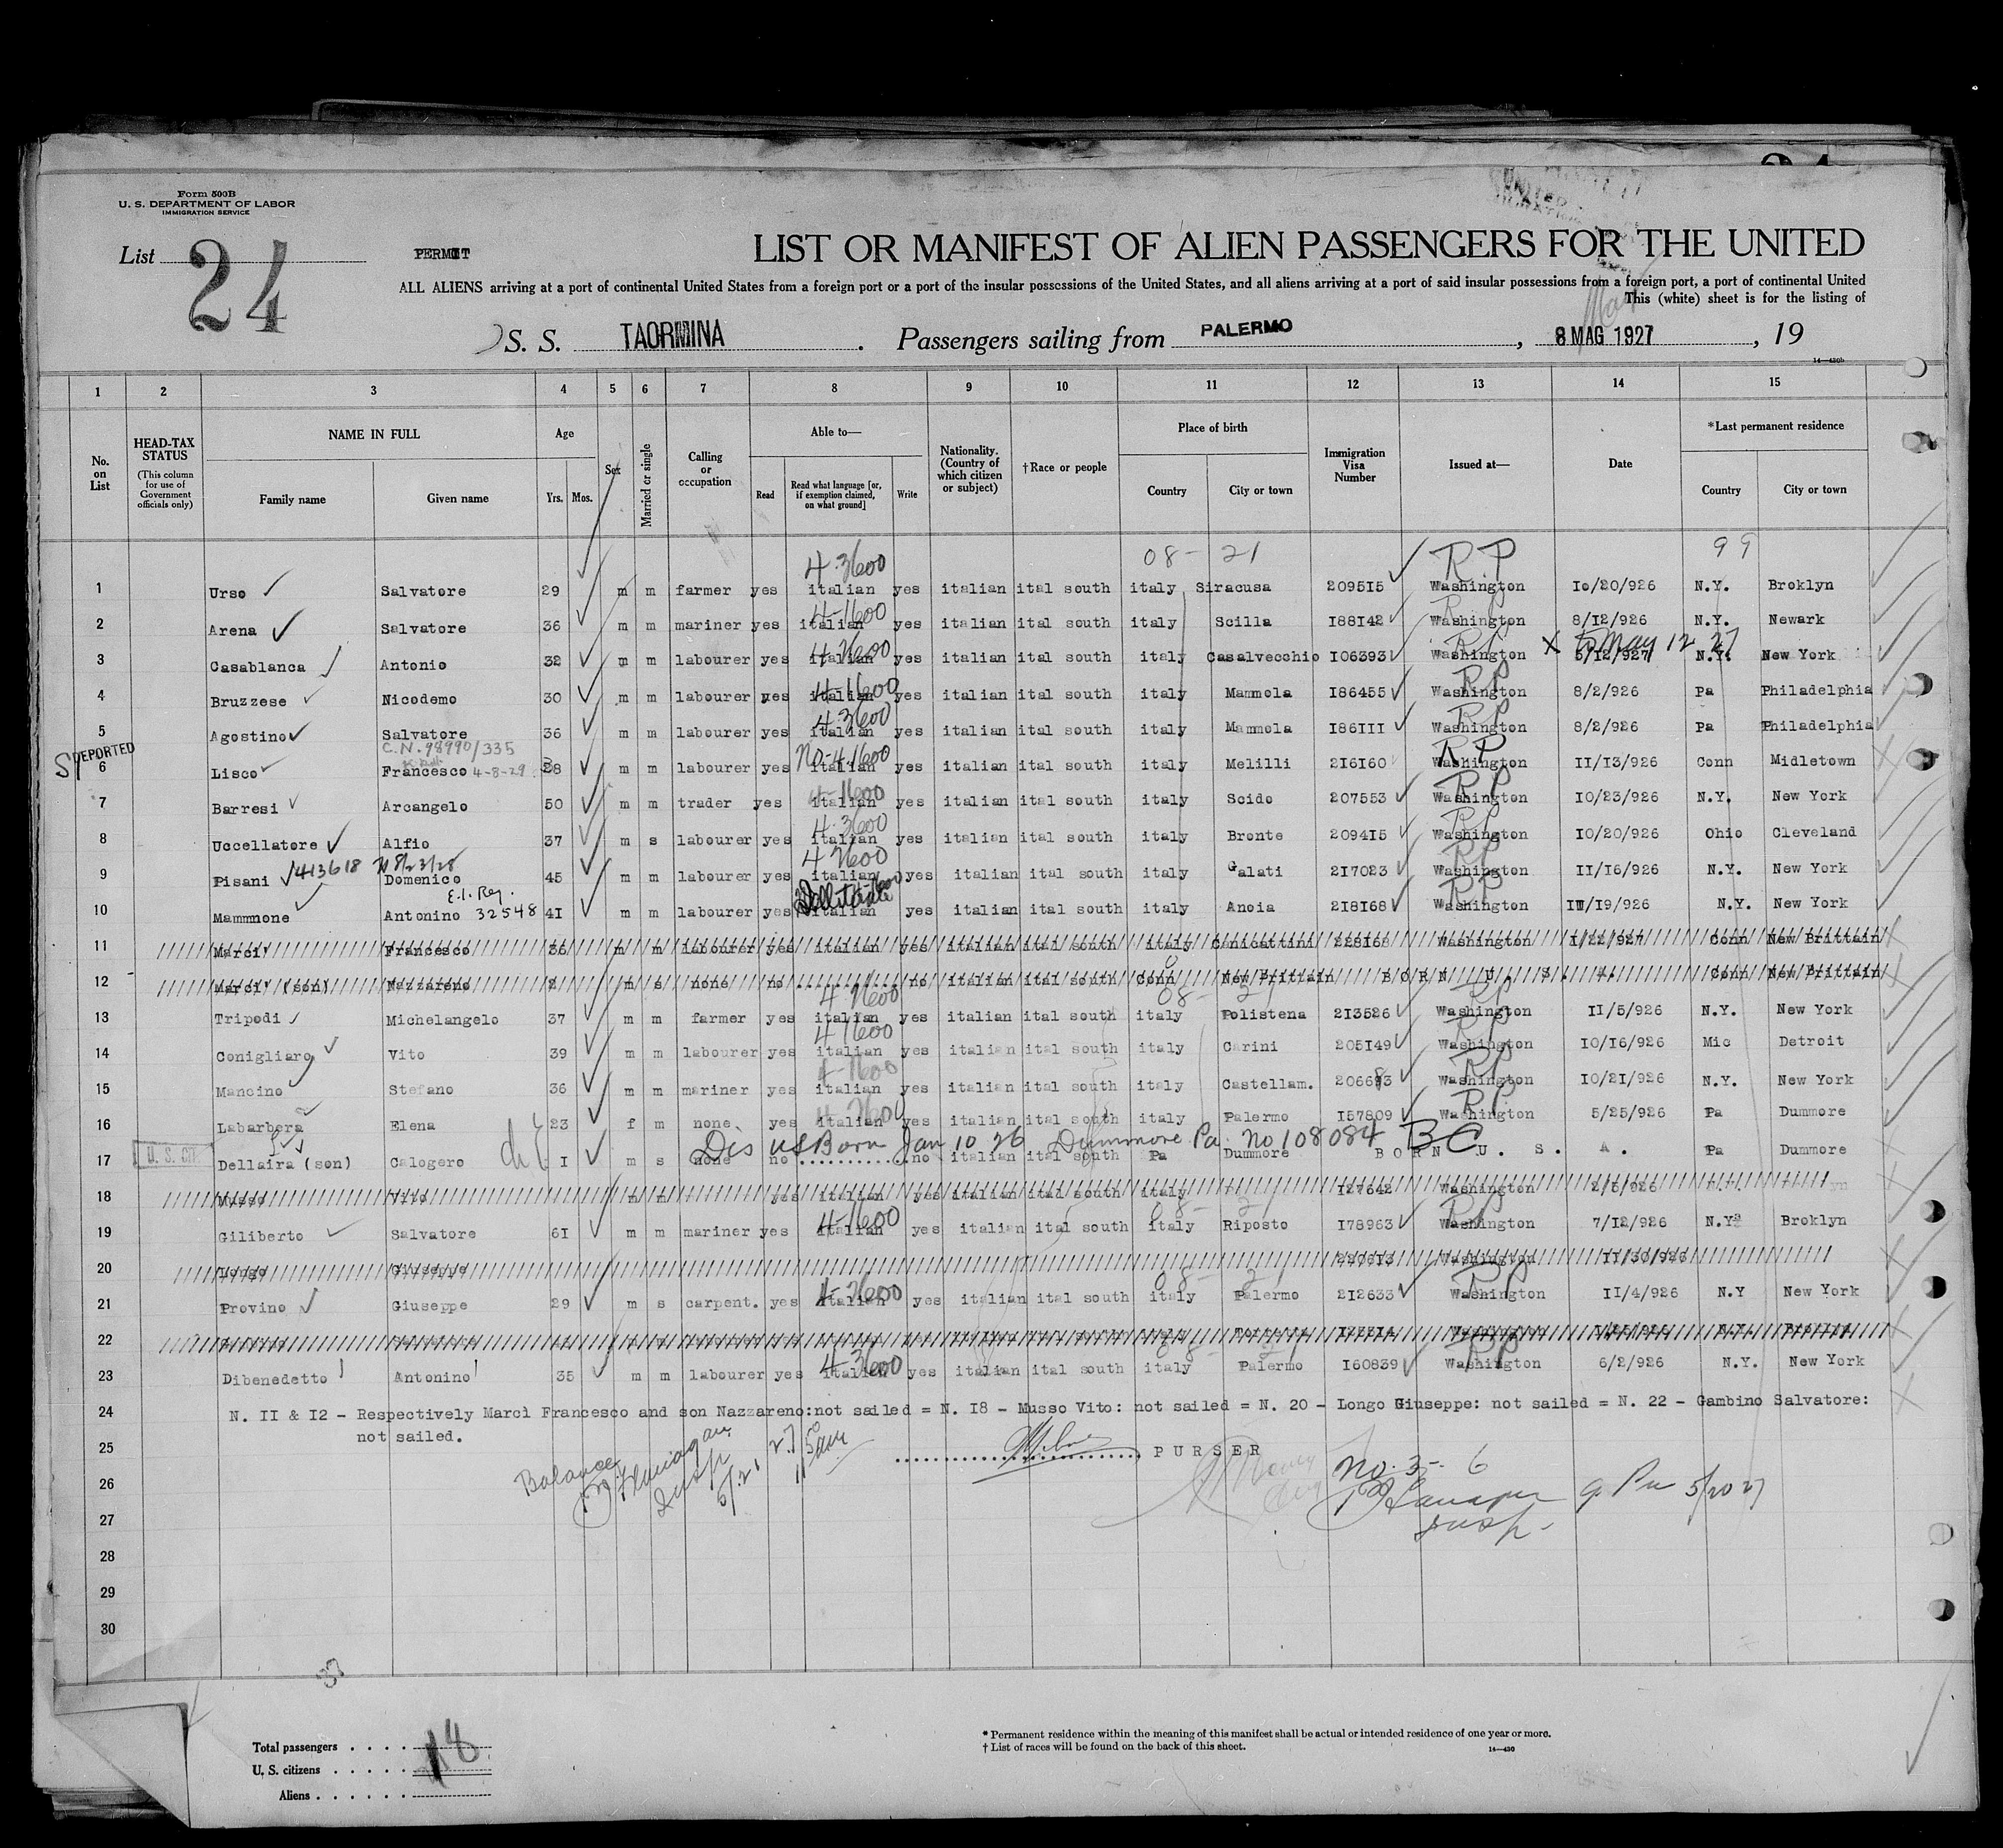 Form 500B
U. S. DEPARTMENT OF LABOR
IMMIGRATION SERVICE
List 24
PERMIT
LIST OR MANIFEST OF ALIEN PASSENGERS FOR THE UNITED
ALL ALIENS arriving at a port of continental United States from a foreign port or a port of the insular possessions of the United States, and all aliens arriving at a port of said insular possessions from a foreign port, a port of continental United
This (white) sheet is for the listing of
S. S. TAORMINA. Passengers sailing from PALERMO, 8 MAG 1927, 19
14—430b
1 2 3 4 5 6 7 8 9 10 11 12 13 14 15
No. on List
HEAD-TAX STATUS
(This column for use of Government officials only)
NAME IN FULL
Family name Given name
Age
Yrs. Mos.
Sex
Married or single
Calling or occupation
Able to—
Read
Read what language [or, if exemption claimed, on what ground]
Write
Nationality. (Country of which citizen or subject)
†Race or people
Place of birth
Country City or town
Immigration Visa Number
Issued at—
Date
*Last permanent residence
Country City or town
4-3600 08- 21 RP 99
1 Urso Salvatore 29 m m farmer yes italian yes italian ital south italy Siracusa 209515 Washington 10/20/926 N.Y. Broklyn
4-1600 RP
2 Arena Salvatore 36 m m mariner yes italian yes italian ital south italy Scilla 188142 Washington 8/12/926 N.Y. Newark
RP X to May 12 27
3 Casablanca Antonio 32 m m labourer yes italian yes italian ital south italy Casalvecchio 106393 Washington 5/12/927 N.Y. New York
4-1600 RP
4 Bruzzese Nicodemo 30 m m labourer yes italian yes italian ital south italy Mammola 186455 Washington 8/2/926 Pa Philadelphia
4-3600 RP
5 Agostino Salvatore 36 m m labourer yes italian yes italian ital south italy Mammola 186111 Washington 8/2/926 Pa Philadelphia
DEPORTED C.N. 98990/335 No-4-1600 RP
6 Lisco Francesco 4-8-29 38 m m labourer yes italian yes italian ital south italy Melilli 216160 Washington 11/13/926 Conn Midletown
4-1600 RP
7 Barresi Arcangelo 50 m m trader yes italian yes italian ital south italy Scido 207553 Washington 10/23/926 N.Y. New York
4-3600 RP
8 Uccellatore Alfio 37 m s labourer yes italian yes italian ital south italy Bronte 209415 Washington 10/20/926 Ohio Cleveland
413618 8/23/28 RP
9 Pisani Domenico 45 m m labourer yes italian yes italian ital south italy Galati 217023 Washington 11/16/926 N.Y. New York
E.I. Reg. RP
10 Mammnone Antonino 32548 41 m m labourer yes italian yes italian ital south italy Anoia 218168 Washington 11/19/926 N.Y. New York
11 Marci Francesco 36 m m labourer yes italian yes italian ital south italy Canicattini Washington 1/22/927 Conn New Brittain
12 Marci (son) Nazzareno m s none no no italian ital south Conn New Brittain BORN U. S. A. Conn New Brittain
08- 21 RP
13 Tripodi Michelangelo 37 m m farmer yes italian yes italian ital south italy Polistena 213526 Washington 11/5/926 N.Y. New York
4-1600 RP
14 Conigliaro Vito 39 m m labourer yes italian yes italian ital south italy Carini 205149 Washington 10/16/926 Mic Detroit
4-1600 RP
15 Mancino Stefano 36 m m mariner yes italian yes italian ital south italy Castellam. Washington 10/21/926 N.Y. New York
RP
16 Labarbera Elena 23 f m none yes italian yes italian ital south italy Palermo 157809 Washington 5/25/926 Pa Dummore
U. S. CIT Dis US Born Jan 10 26 Dummore Pa. No 108084 BC
17 Dellaira (son) Calogero 1 m s none no no italian ital south Pa Dummore BORN U. S. A. Pa Dummore
18 Musso Vito m m yes italian yes italian ital south italy 127642 Washington
4-1600 08- 21 RP
19 Giliberto Salvatore 61 m m mariner yes italian yes italian ital south italy Riposto 178963 Washington 7/12/926 N.Y. Broklyn
20 Longo Giuseppe Washington 11/30/926
08- 21 RP
21 Provino Giuseppe 29 m s carpent. yes italian yes italian ital south italy Palermo 212633 Washington 11/4/926 N.Y New York
22
4-3600 08- 21 RP
23 Dibenedetto Antonino 35 m m labourer yes italian yes italian ital south italy Palermo 160839 Washington 6/2/926 N.Y. New York
24 N. 11 & 12 - Respectively Marcì Francesco and son Nazzareno:not sailed = N. 18 - Musso Vito: not sailed = N. 20 - Longo Giuseppe: not sailed = N. 22 - Gambino Salvatore:
not sailed.
25 PURSER
Balance
26 No. 3-6
27
28
29
30
Total passengers 18
U. S. citizens
Aliens
* Permanent residence within the meaning of this manifest shall be actual or intended residence of one year or more.
† List of races will be found on the back of this sheet.
14—430